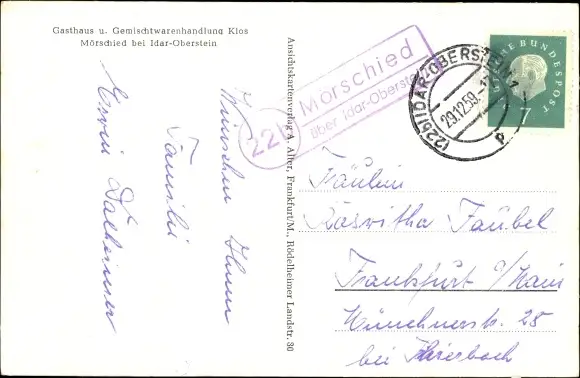 Gasthaus u. Gemischtwarenhandlung Klos
Mörschied bei Idar-Oberstein
Wünschen Ihnen
Familie
Erwin
Ansichtskartenverlag A. Alter, Frankfurt/M., Rödelheimer Landstr. 30
22b Mörschied
über Idar-Oberstein
(22b) IDAR-OBERSTEIN
29.12.59
d
BUNDESPOST
7
Fräulein
Roswitha Faubel
Frankfurt a/Main
Münchnerstr. 25
bei